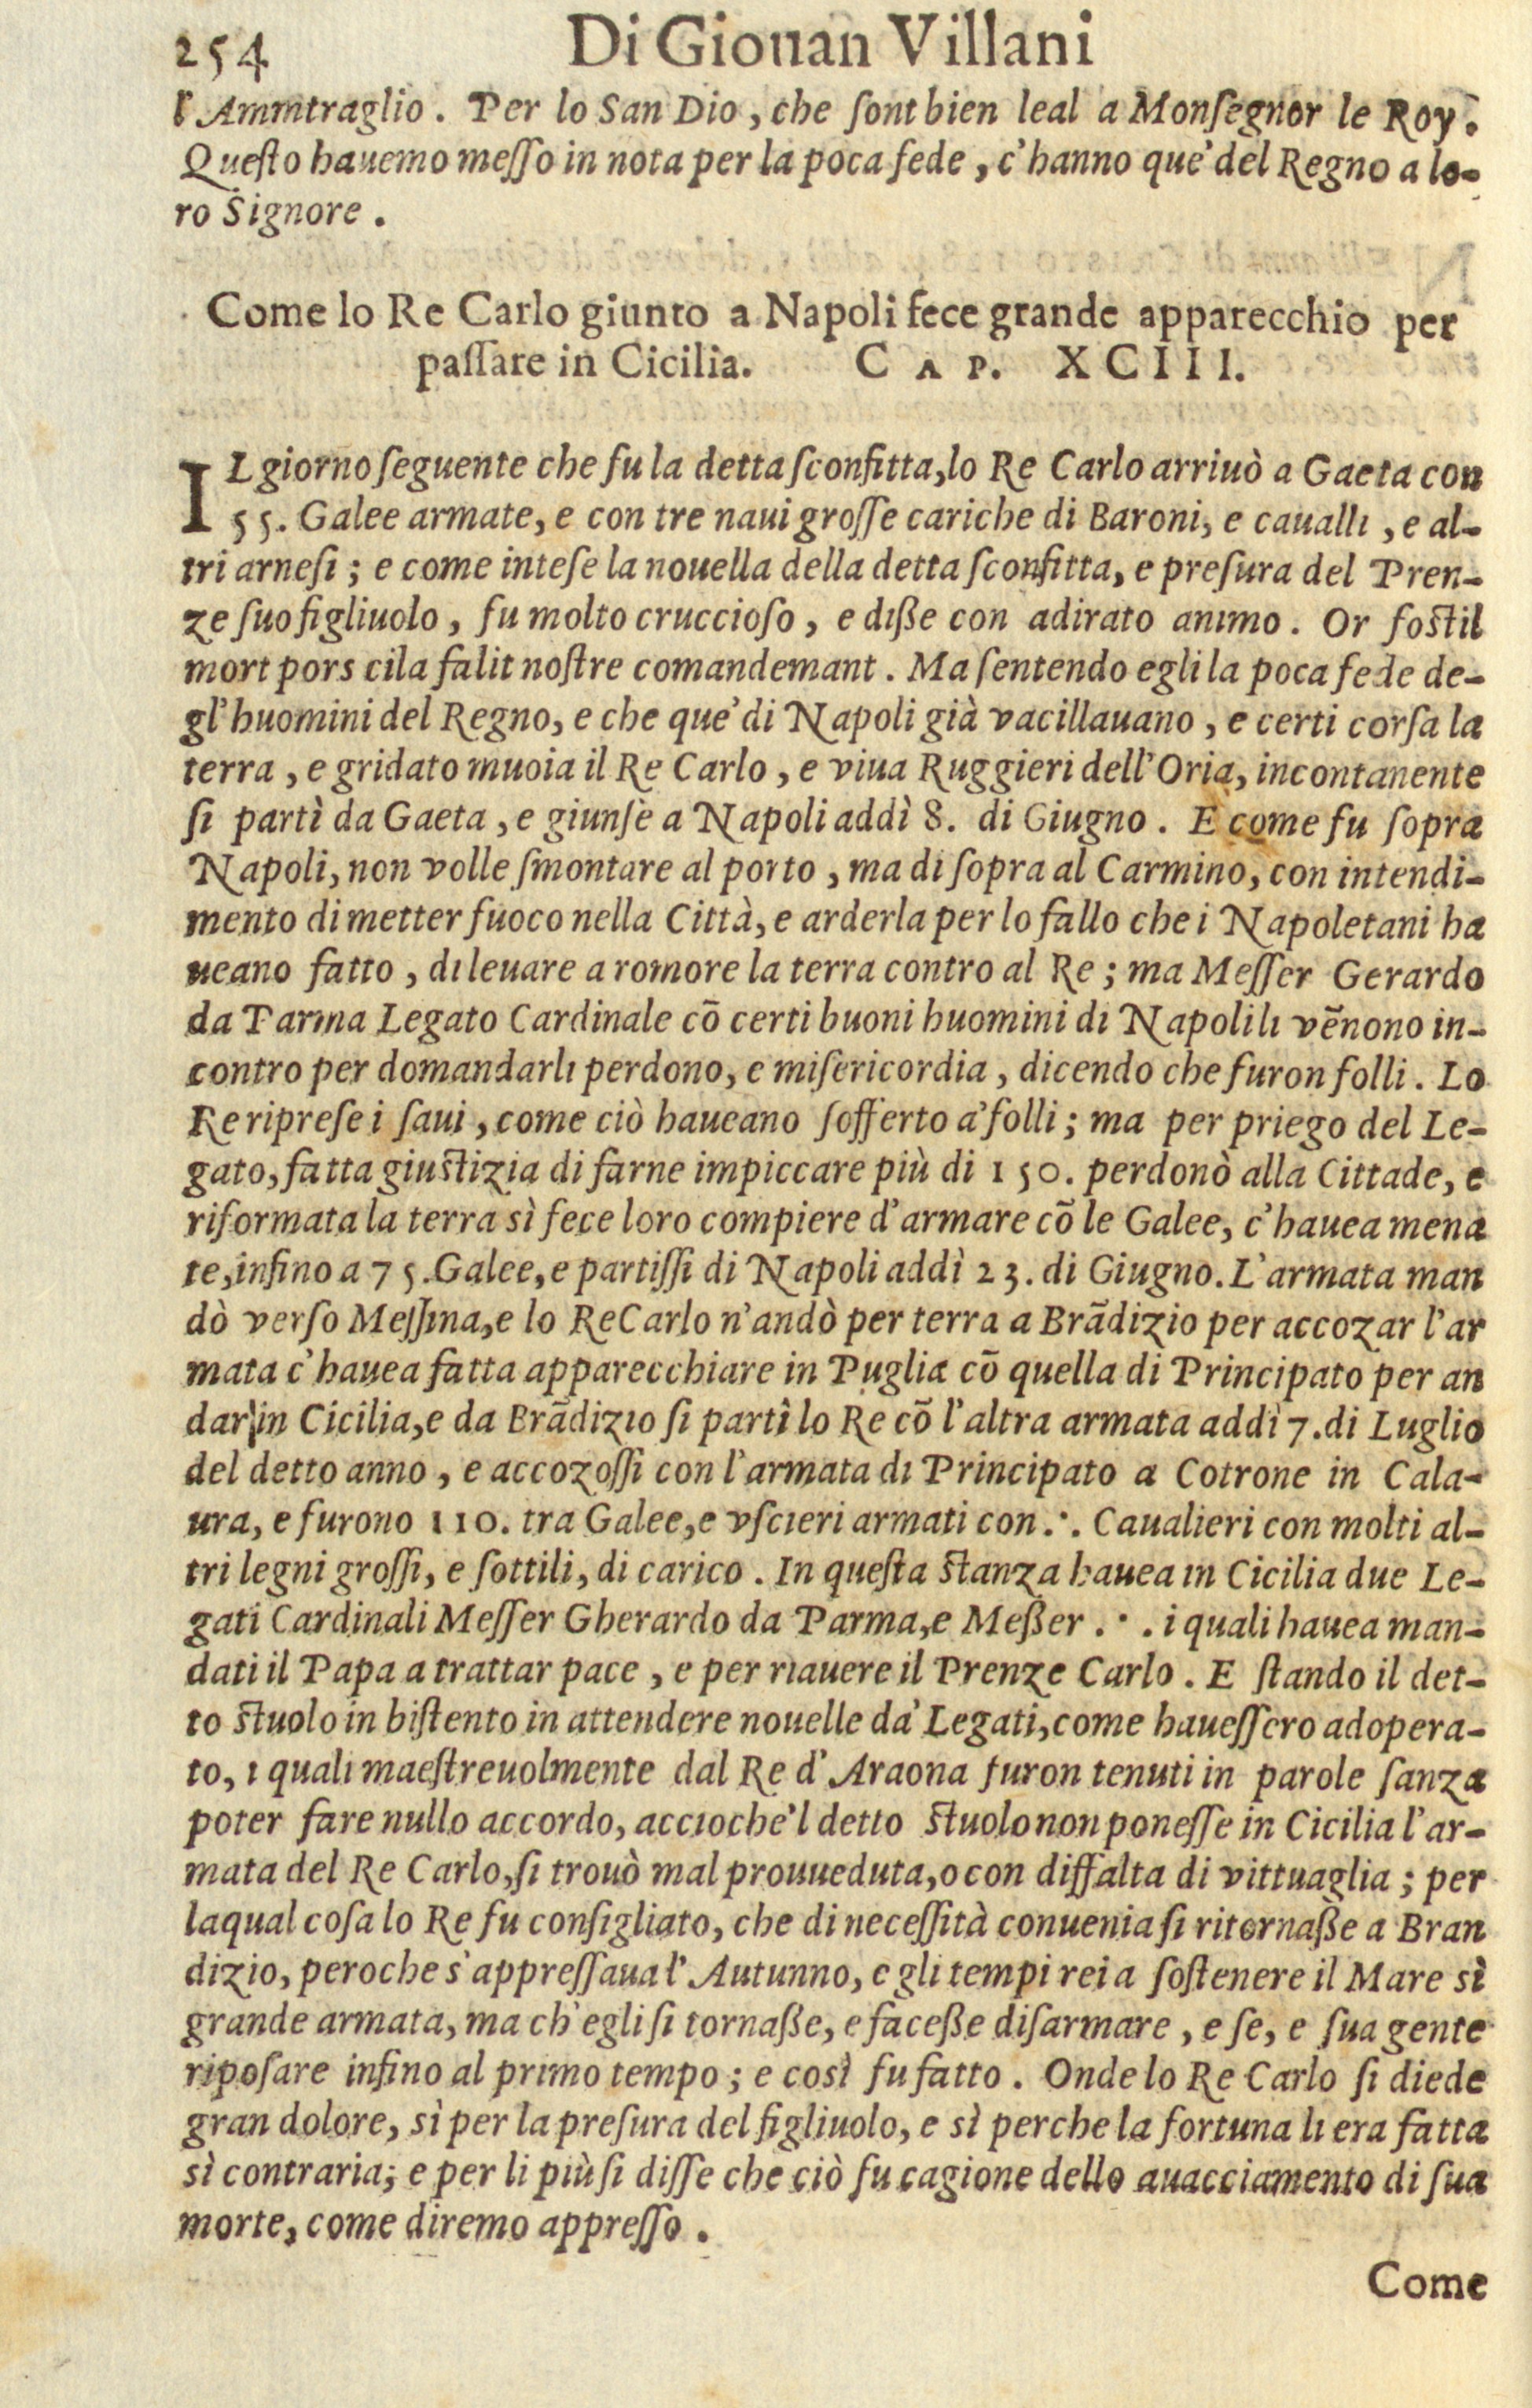 254 Di Giouan Villani
l'Ammtraglio. Per lo San Dio, che ſont bien leal a Monſegnor le Roy.
Queſto hauemo meſſo in nota per la poca fede, c'hanno que' del Regno a lo-
ro Signore.
Come lo Re Carlo giunto a Napoli fece grande apparecchio per
paſſare in Cicilia. CAP. XCIII.
IL giorno ſeguente che fu la detta ſconfitta, lo Re Carlo arriuò a Gaeta con
55. Galee armate, e con tre naui groſſe cariche di Baroni, e caualli, e al-
tri arneſi; e come inteſe la nouella della detta ſconfitta, e preſura del Pren-
ze ſuo figliuolo, fu molto cruccioſo, e diße con adirato animo. Or foſtil
mort pors cila falit noſtre comandemant. Ma ſentendo egli la poca fede de-
gl'huomini del Regno, e che que' di Napoli già vacillauano, e certi corſa la
terra, e gridato muoia il Re Carlo, e viua Ruggieri dell'Oria, incontanente
ſi partì da Gaeta, e giunſe a Napoli addì 8. di Giugno. E come fu ſopra
Napoli, non volle ſmontare al porto, ma di ſopra al Carmino, con intendi-
mento di metter fuoco nella Città, e arderla per lo fallo che i Napoletani ha
ueano fatto, di leuare a romore la terra contro al Re; ma Meſſer Gerardo
da Parma Legato Cardinale cõ certi buoni huomini di Napoli li vẽnono in-
contro per domandarli perdono, e miſericordia, dicendo che furon folli. Lo
Re ripreſe i ſaui, come ciò haueano ſofferto a' folli; ma per priego del Le-
gato, fatta giuſtizia di farne impiccare più di 150. perdonò alla Cittade, e
riformata la terra sì fece loro compiere d'armare cõ le Galee, c'hauea mena
te, infino a 75. Galee, e partiſſi di Napoli addì 23. di Giugno. L'armata man
dò verſo Meſſina, e lo Re Carlo n'andò per terra a Brãdizio per accozar l'ar
mata c'hauea fatta apparecchiare in Puglia cõ quella di Principato per an
dar in Cicilia, e da Brãdizio ſi partì lo Re cõ l'altra armata addì 7. di Luglio
del detto anno, e accozoſſi con l'armata di Principato a Cotrone in Cala-
ura, e furono 110. tra Galee, e vſcieri armati con .·. Caualieri con molti al-
tri legni groſſi, e ſottili, di carico. In queſta ſtanza hauea in Cicilia due Le-
gati Cardinali Meſſer Gherardo da Parma, e Meßer .·. i quali hauea man-
dati il Papa a trattar pace, e per riauere il Prenze Carlo. E ſtando il det-
to ſtuolo in biſtento in attendere nouelle da' Legati, come haueſſero adopera-
to, i quali maeſtreuolmente dal Re d'Araona furon tenuti in parole ſanza
poter fare nullo accordo, accioche'l detto ſtuolo non poneſſe in Cicilia l'ar-
mata del Re Carlo, ſi trouò mal proueduta, o con diffalta di vittuaglia; per
laqual coſa lo Re fu conſigliato, che di neceſſità conuenia ſi ritornaße a Bran
dizio, peroche s'appreſſaua l'Autunno, e gli tempi rei a ſoſtenere il Mare sì
grande armata, ma ch'egli ſi tornaße, e faceße diſarmare, e ſe, e ſua gente
ripoſare infino al primo tempo; e così fu fatto. Onde lo Re Carlo ſi diede
gran dolore, sì per la preſura del figliuolo, e sì perche la fortuna li era fatta
sì contraria; e per li più ſi diſſe che ciò fu cagione dello auacciamento di ſua
morte, come diremo appreſſo.
Come